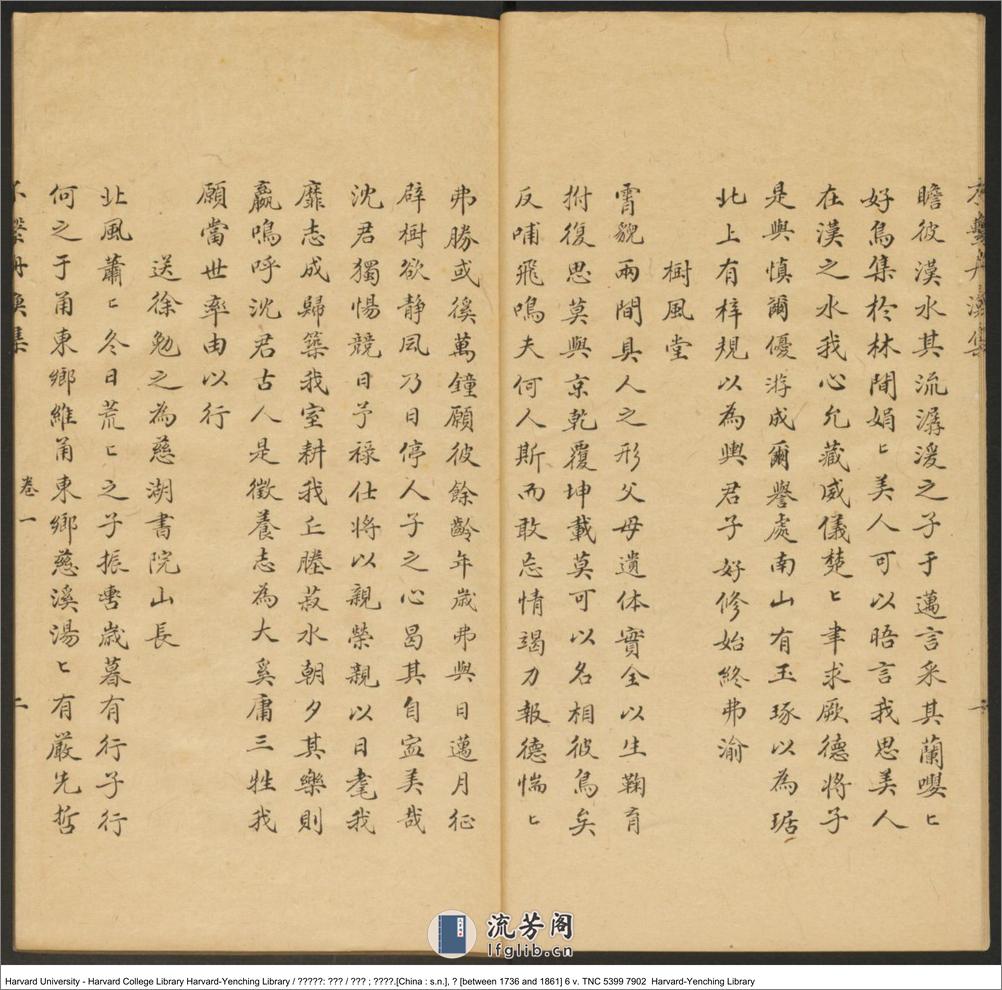 瞻彼漢水其流潺湲之子于邁言采其蘭嚶〻
好鳥集於林間娟〻美人可以晤言我思美人
在漢之水我心允藏威儀楚〻聿求厥德將子
是與慎爾優游成爾譽處南山有玉琢以為琚
北上有梓規以為輿君子好修始終弗渝
樹風堂
霄貌兩間具人之形父母遺体實全以生鞠育
拊復思莫與京乾覆坤載莫可以名相彼鳥矣
反哺飛鳴夫何人斯而敢忘情竭力報德惴〻
弗勝或徯萬鐘願彼餘齡年歲弗與日邁月征
辟樹欲静風乃日停人子之心曷其自寍美哉
沈君獨惕競日予祿仕將以親榮親以日耄我
靡志成歸築我室耕我丘塍菽水朝夕其樂則
贏鳴呼沈君古人是徵養志為大奚庸三牲我
願當世率由以行
送徐勉之為慈湖書院山長
北風蕭〻冬日荒〻之子振轡歲暮有行子行
何之于甬東鄉維甬東鄉慈溪湯〻有嚴先哲
卷一
二
流芳阁
lfglib.cn
Harvard University - Harvard College Library Harvard-Yenching Library / ?????: ??? / ??? ; ????.[China : s.n.], ? [between 1736 and 1861] 6 v. TNC 5399 7902 Harvard-Yenching Library